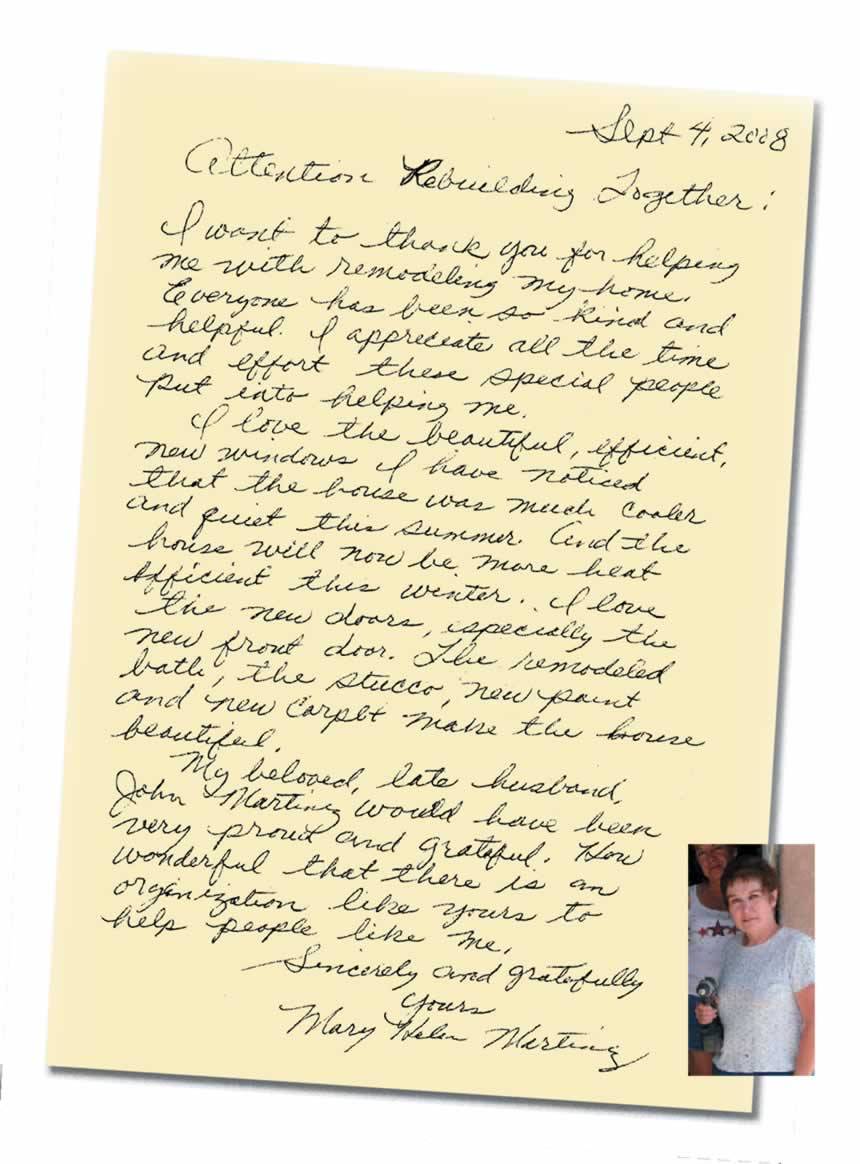 Sept 4, 2008
Attention Rebuilding Together:
I want to thank you for helping
me with remodeling my home.
Everyone has been so kind and
helpful. I appreciate all the time
and effort these special people
put into helping me.
I love the beautiful, efficient,
new windows I have noticed
that the house was much cooler
and quiet this summer. And the
house will now be more heat
efficient this winter. I love
the new doors, especially the
new front door. The remodeled
bath, the stucco, new paint
and new carpet make the house
beautiful.
My beloved, late husband,
John Martinez would have been
very proud and grateful. How
wonderful that there is an
organization like yours to
help people like me.
Sincerely and gratefully
yours
Mary Helen Martinez